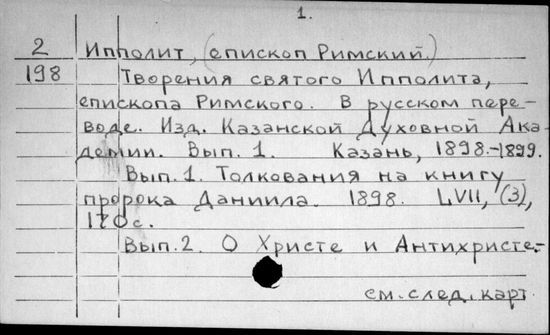 1.
2 Ипполит, (епископ Римский.)
198 Творения святого Ипполита,
епископа Римского. В русском пере-
воде. Изд. Казанской Духовной Ака-
демии. Вып. 1. Казань, 1898.-1899.
Вып. 1. Толкования на книгу
пророка Даниила. 1898. LVII, (3),
170 с.
Вып. 2. О Христе и Антихристе.-
см. след. карт